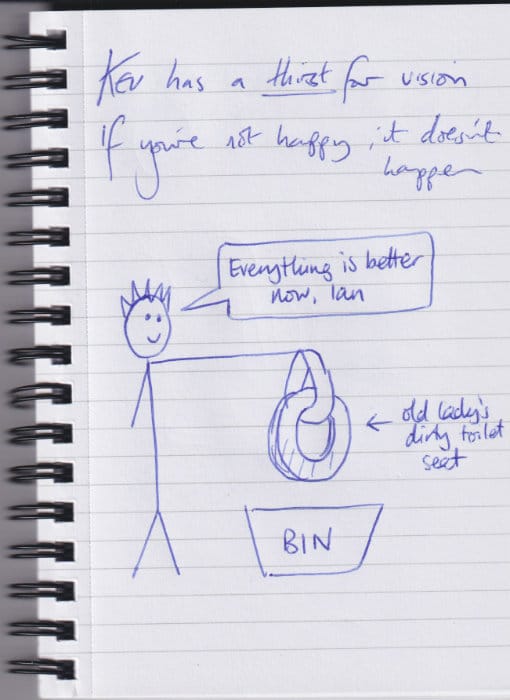 Kev has a thirst for vision
If you're not happy, it doesn't
happen
Everything is better
now, Ian
← old lady's
dirty toilet
seat
BIN